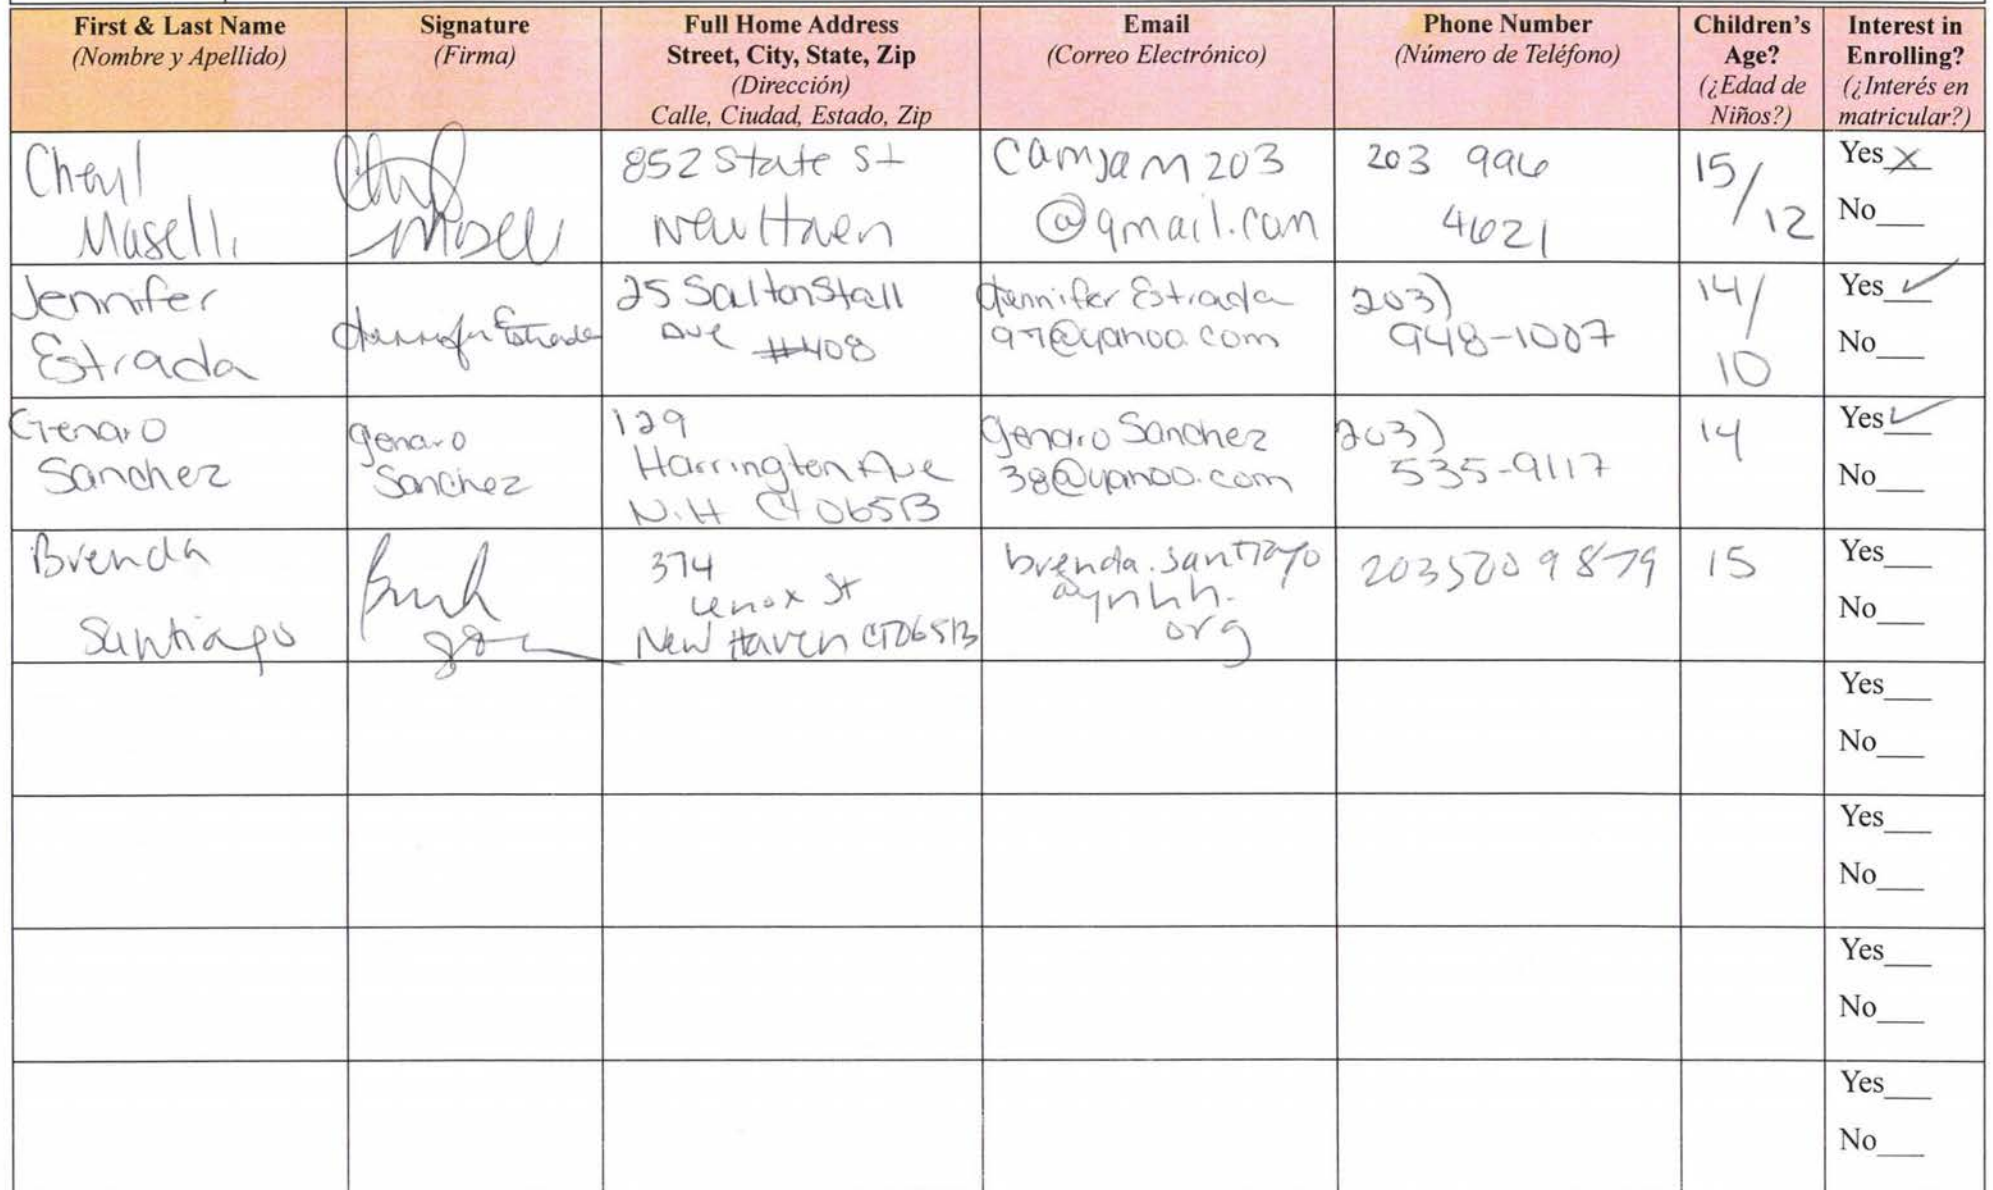 First & Last Name
(Nombre y Apellido)
Signature
(Firma)
Full Home Address
Street, City, State, Zip
(Dirección)
Calle, Ciudad, Estado, Zip
Email
(Correo Electrónico)
Phone Number
(Número de Teléfono)
Children's
Age?
(¿Edad de
Niños?)
Interest in
Enrolling?
(¿Interés en
matricular?)
Cheryl
Maselli
852 State St
New Haven
Camjam203
@gmail.com
203 996
4621
15/
12
Yes X
No
Jennifer
Estrada
Jennifer Estrada
25 Saltonstall
Ave #408
Jennifer Estrada
97@yahoo.com
203)
948-1007
14/
10
Yes ✓
No
Genaro
Sanchez
genaro
Sanchez
129
Harrington Ave
N.H CT 06513
Genaro Sanchez
38@yahoo.com
203)
535-9117
14
Yes ✓
No
Brenda
Santiago
374
Lenox St
New Haven CT06513
brenda.santiago
@ynhh.
org
15
Yes
No
Yes
No
Yes
No
Yes
No
Yes
No